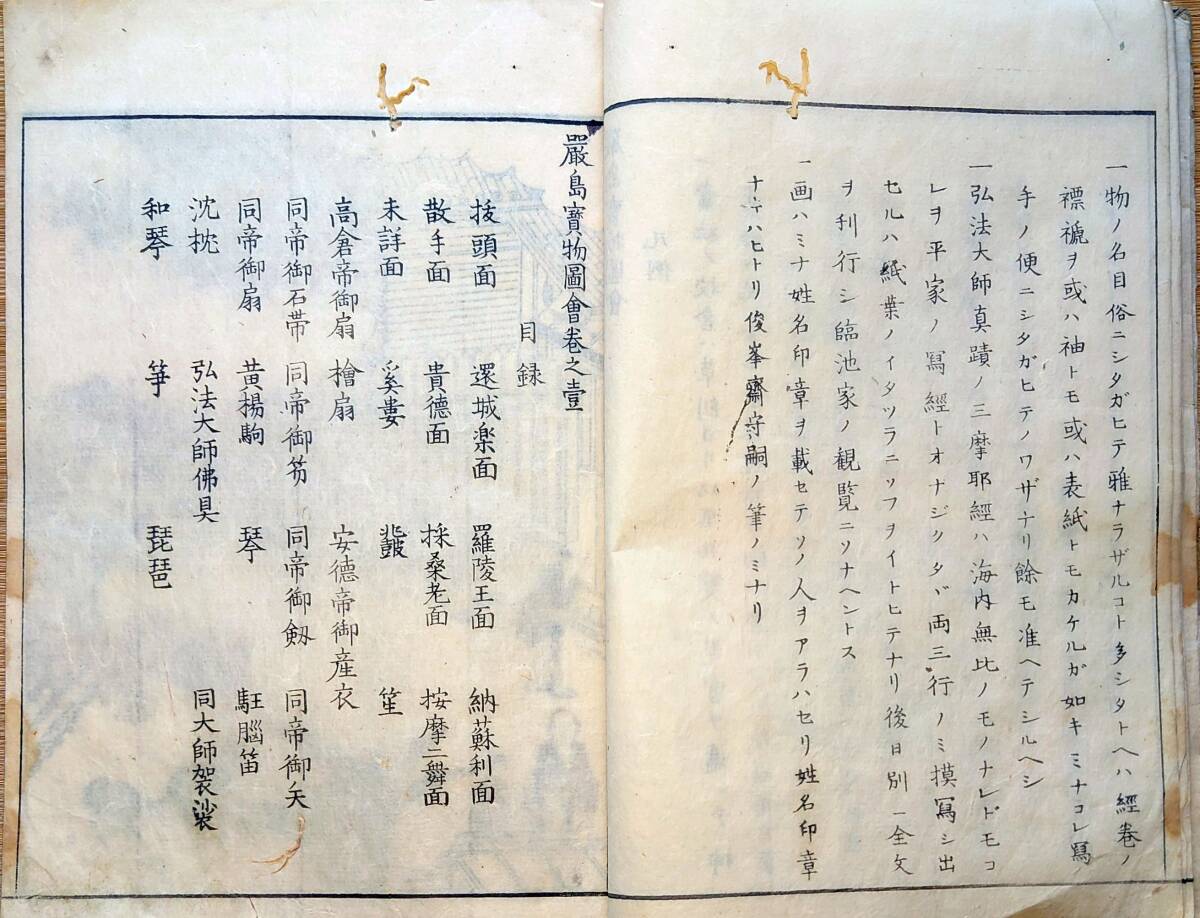 一物ノ名目俗ニシタガヒテ雅ナラザルコト多シタトヘハ經巻ノ
褾褫ヲ或ハ袖トモ或ハ表紙トモカケルガ如キミナコレ寫
手ノ便ニシタガヒテノワザナリ餘モ准ヘテシルヘシ
一弘法大師真蹟ノ三摩耶經ハ海内無比ノモノナレドモコ
レヲ平家ノ寫經トオナジクタヾ両三行ノミ摸寫シ出
セルハ紙葉ノイタツラニツフヲイトヒテナリ後日別ニ全文
ヲ利行シ臨池家ノ観覧ニソナヘントス
一画ハミナ姓名印章ヲ載セテソノ人ヲアラハセリ姓名印章
ナキハヒトリ俊峯齋守嗣ノ筆ノミナリ
嚴島寶物圖會巻之壹
目録
抜頭面 還城楽面 羅陵王面 納蘇利面
散手面 貴德面 採桑老面 按摩二舞面
未詳面 奚婁 鼗鼓 笙
高倉帝御扇 檜扇 安德帝御産衣
同帝御石帯 同帝御笏 同帝御劔 同帝御矢
同帝御扇 黄楊駒 琴 駐腦笛
沈枕 弘法大師佛具 同大師袈裟
和琴 箏 琵琶